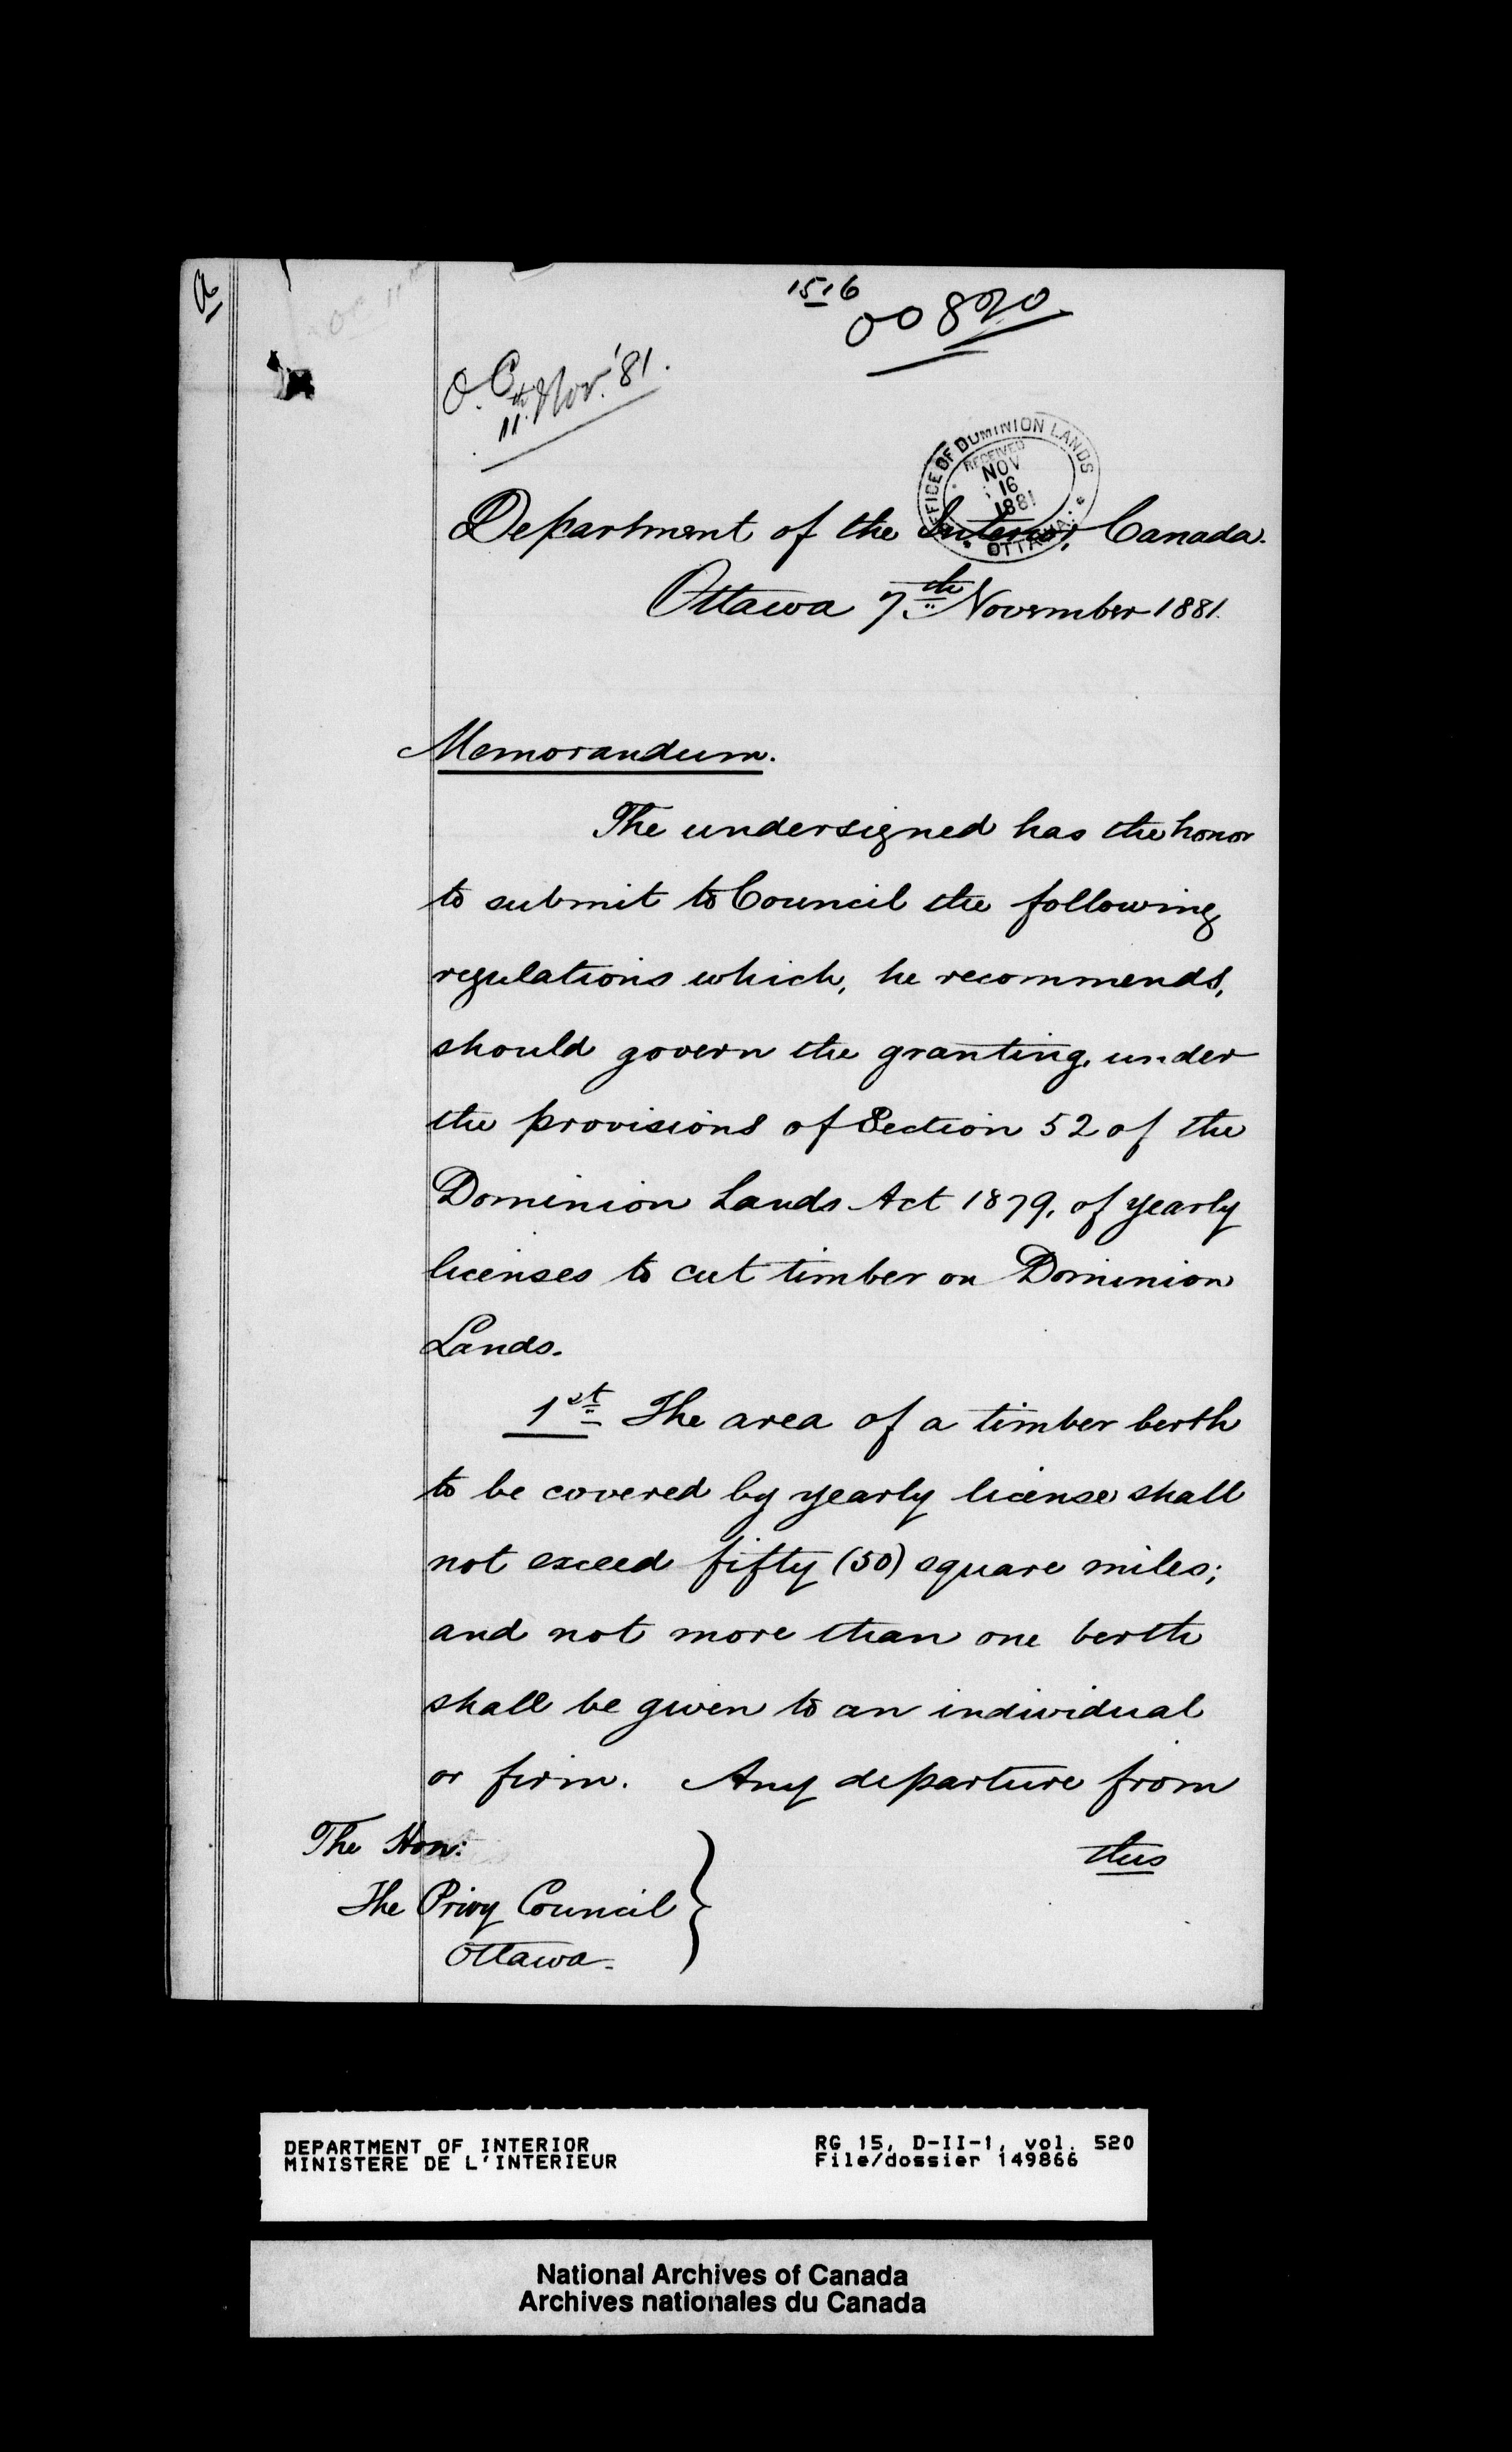 1516
00820
O.C.
11th Nov. '81.
OFFICE OF DOMINION LANDS
RECEIVED
NOV
16
1881
OTTAWA
Department of the Interior, Canada.
Ottawa 7th November 1881.
Memorandum.
The undersigned has the honor
to submit to Council the following
regulations which, he recommends,
should govern the granting, under
the provisions of Section 52 of the
Dominion Lands Act 1879, of yearly
licenses to cut timber on Dominion
Lands.
1st The area of a timber berth
to be covered by yearly license shall
not exceed fifty (50) square miles;
and not more than one berth
shall be given to an individual
or firm. Any departure from
this
The Hon:
The Privy Council
Ottawa.
DEPARTMENT OF INTERIOR
MINISTERE DE L'INTERIEUR
RG 15, D-II-1, vol. 520
File/dossier 149866
National Archives of Canada
Archives nationales du Canada